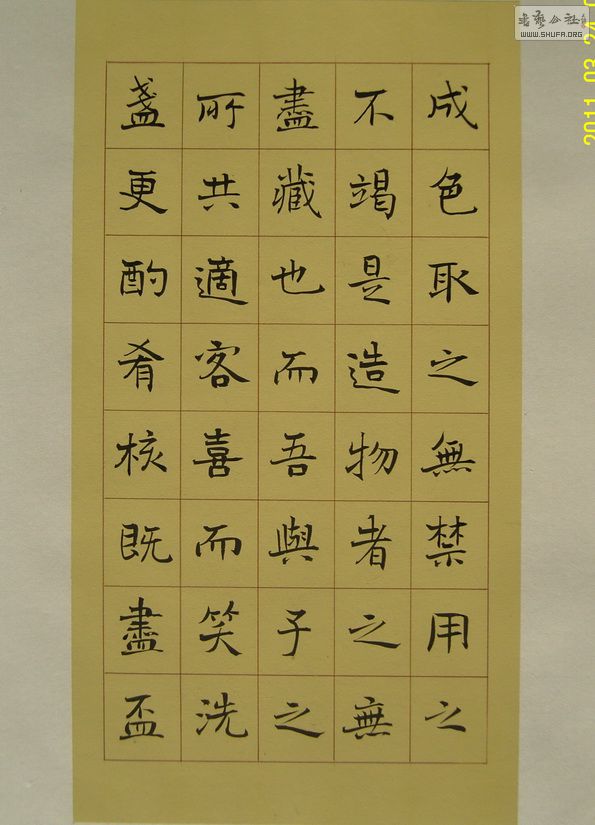 成色取之無禁用之
不竭是造物者之無
盡藏也而吾與子之
所共適客喜而笑洗
盞更酌肴核既盡盃
書藝公社
WWW.SHUFA.ORG